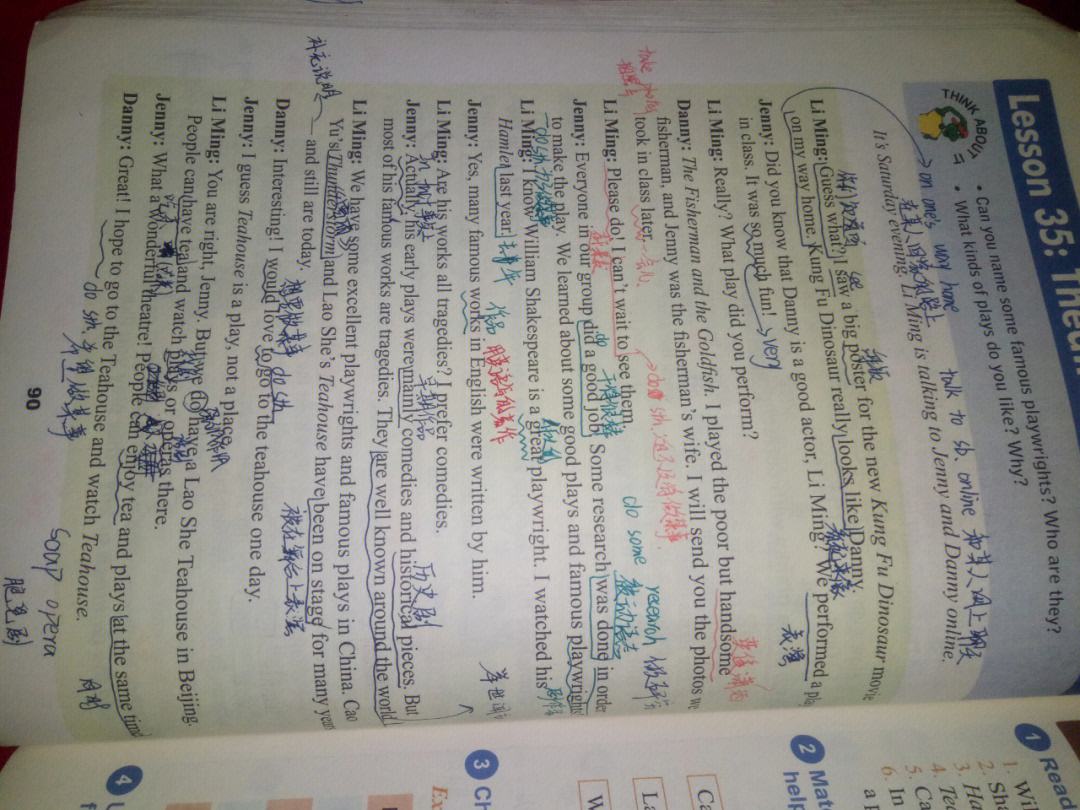 Lesson 35:
THINK ABOUT IT
• Can you name some famous playwrights? Who are they?
• What kinds of plays do you like? Why?
on one's way home talk to sb. online 和某人网上聊天
在某人回家的路上
It's Saturday evening. Li Ming is talking to Jenny and Danny online.
Li Ming: Guess what? I saw a big poster for the new Kung Fu Dinosaur movie
see 海报
on my way home. Kung Fu Dinosaur really looks like Danny.
看起来像
Jenny: Did you know that Danny is a good actor, Li Ming? We performed a
表演
in class. It was so much fun! very
Li Ming: Really? What play did you perform?
Danny: The Fisherman and the Goldfish. I played the poor but handsome
英俊潇洒
fisherman, and Jenny was the fisherman's wife. I will send you the photos we
take photos
took in class later.
一会儿
Li Ming: Please do! I can't wait to see them.
do some research 做研究
Jenny: Everyone in our group did a good job. Some research was done in
do 干得很好 被动语态
to make the play. We learned about some good plays and famous playwrights
Li Ming: I know William Shakespeare is a great playwright. I watched his
伟大的
Hamlet last year. 去年
作品
Jenny: Yes, many famous works in English were written by him.
Li Ming: Are his works all tragedies? I prefer comedies.
事实上 早期作品 历史剧
Jenny: Actually, his early plays were mainly comedies and historical pieces. But
most of his famous works are tragedies. They are well known around the world
举世闻名
Li Ming: We have some excellent playwrights and famous plays in China. Cao
Yu's Thunderstorm and Lao She's Teahouse have been on stage for many years
补充说明 被在舞台上表演
— and still are today.
Danny: Interesting! I would love to go to the teahouse one day.
想要做某事 to do sth
Jenny: I guess Teahouse is a play, not a place.
Li Ming: You are right, Jenny. But we do have a Lao She Teahouse in Beijing.
People can have tea and watch plays or operas there.
喝茶
Jenny: What a wonderful theatre! People can enjoy tea and plays at the same time
同时
Danny: Great! I hope to go to the Teahouse and watch Teahouse.
to do sth 希望做某事
soup opera
肥皂剧
90
1 Read
1. Wil
2. Sh
3. Ha
4. Te
5. Ca
6. In
2 Mat
help
Ca
La
W
3 Ch
Ex
4